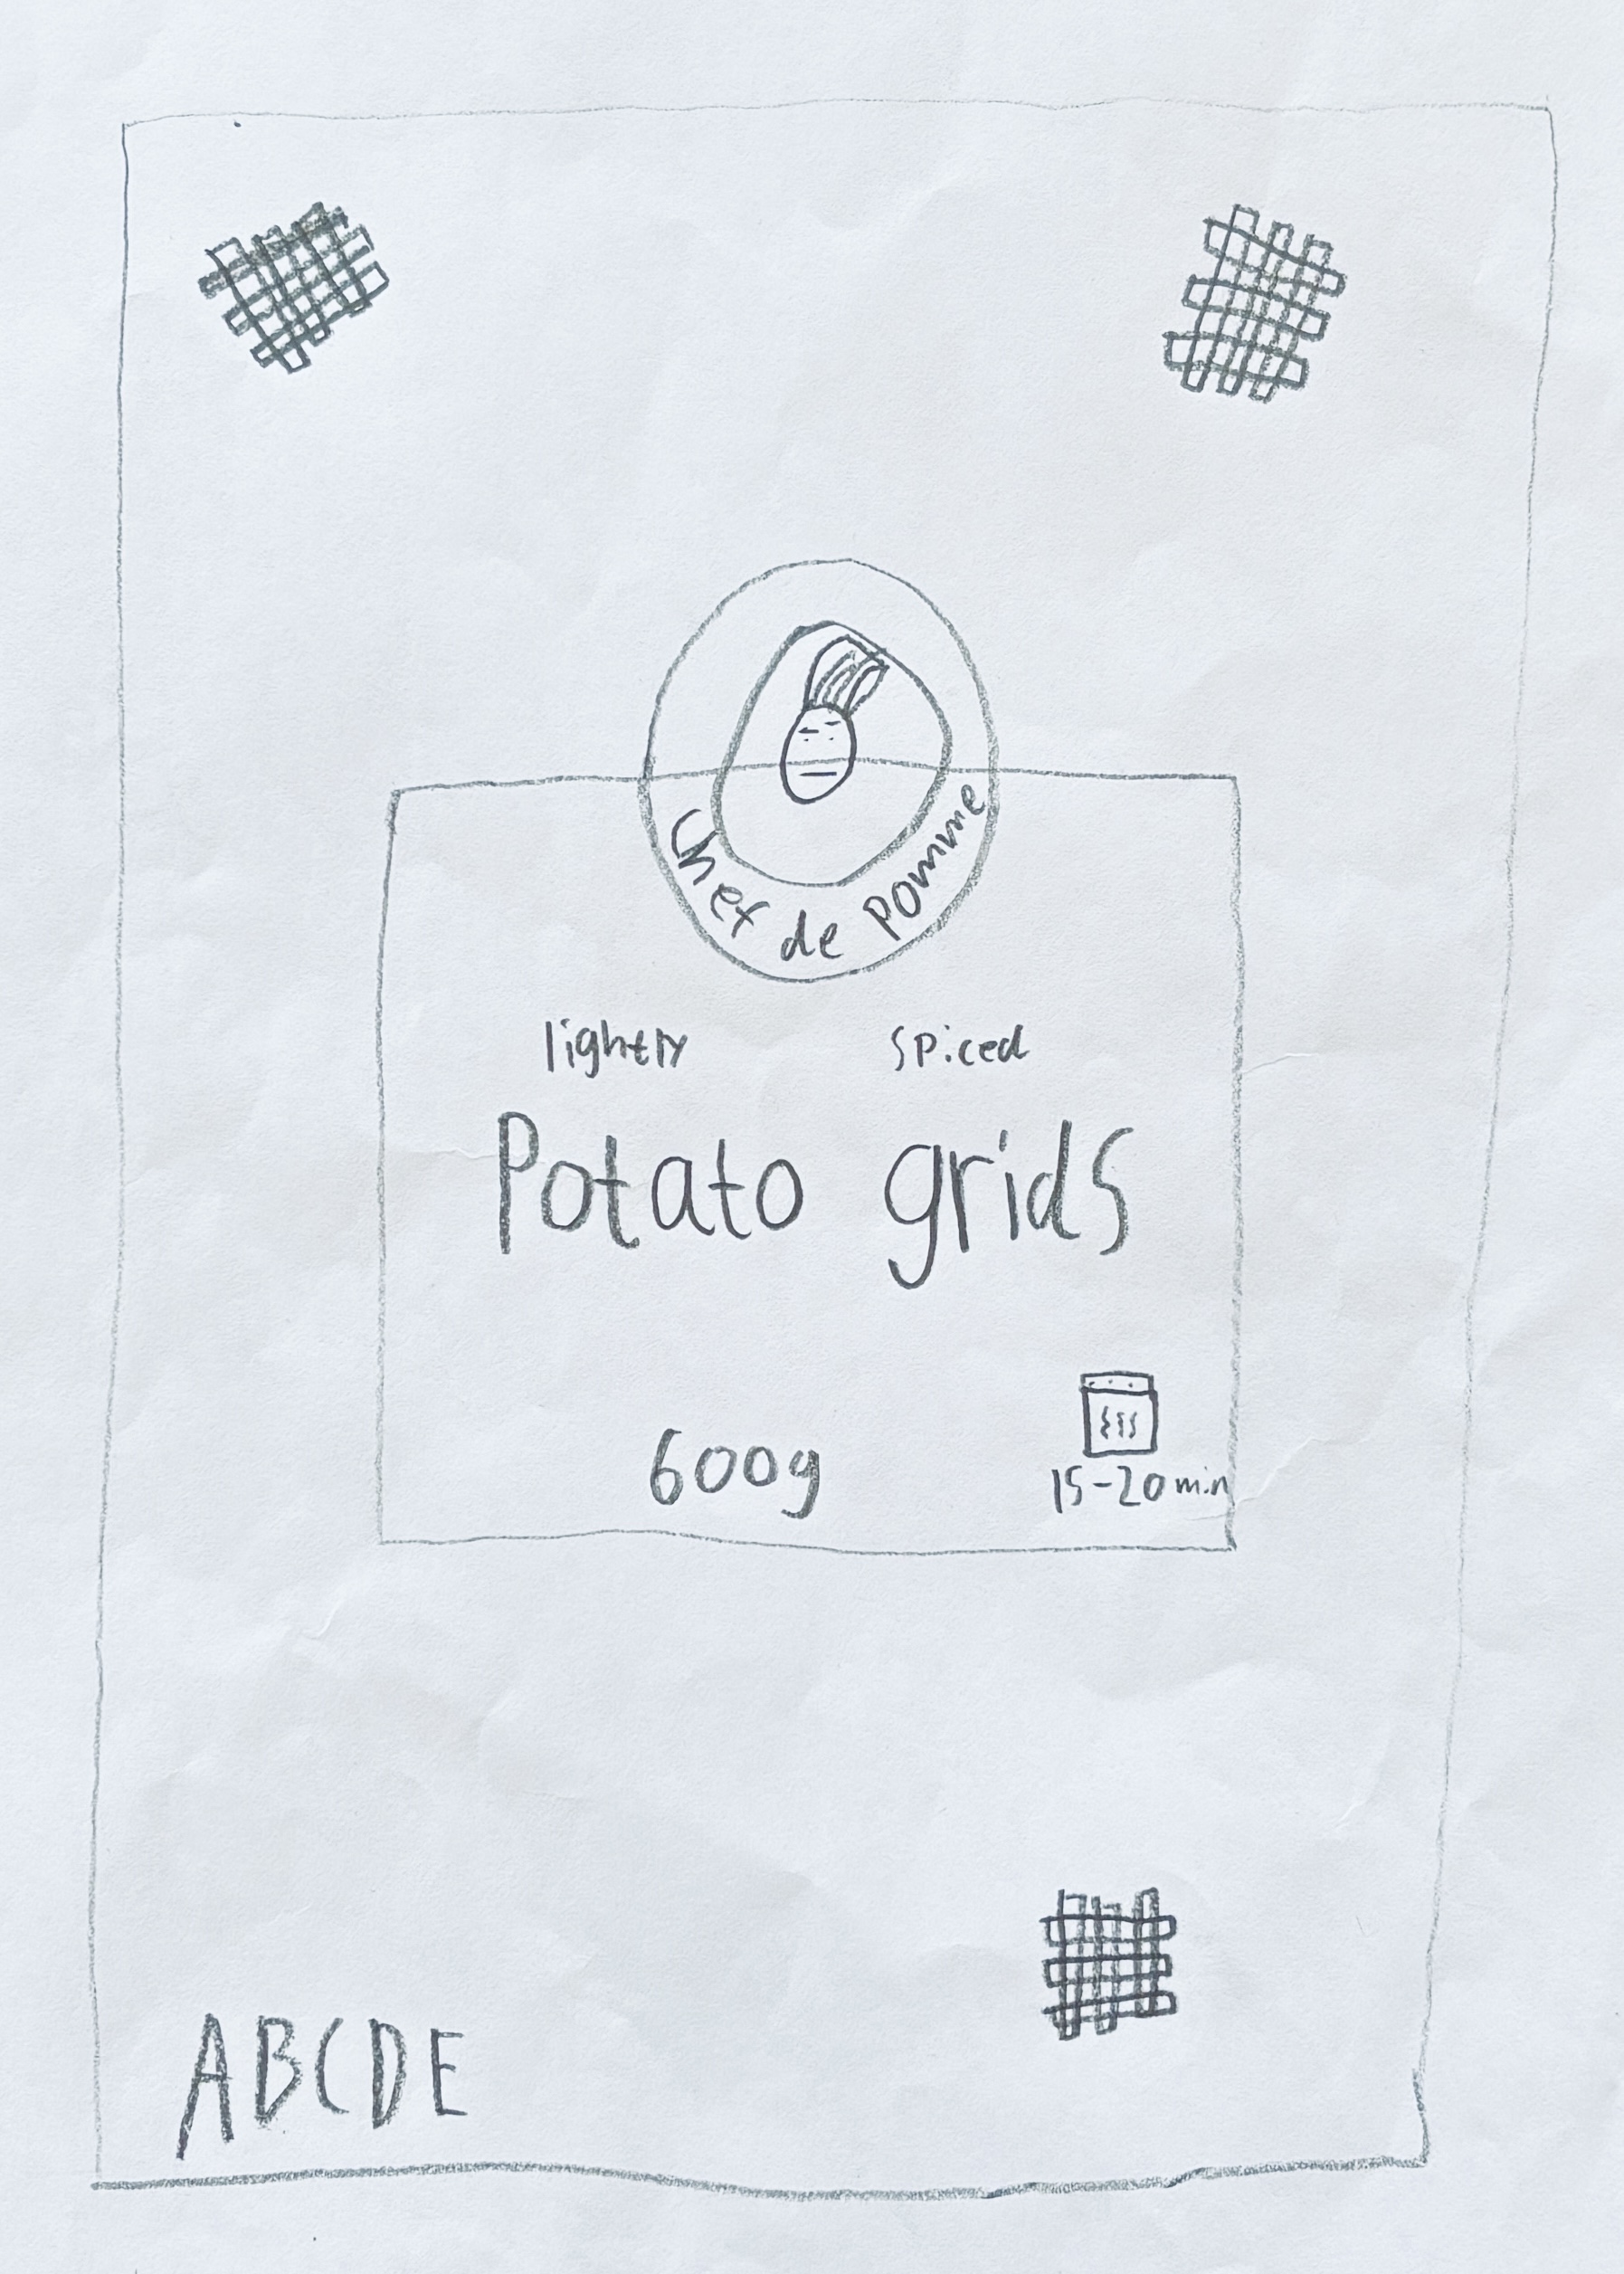 Chef de Pomme
lightly spiced
Potato grids
600g
15-20 min
ABCDE